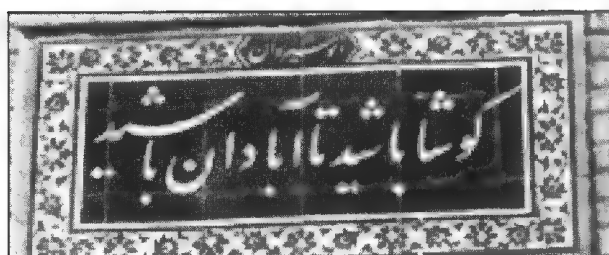 کوشا باشید تا آبادان باشید